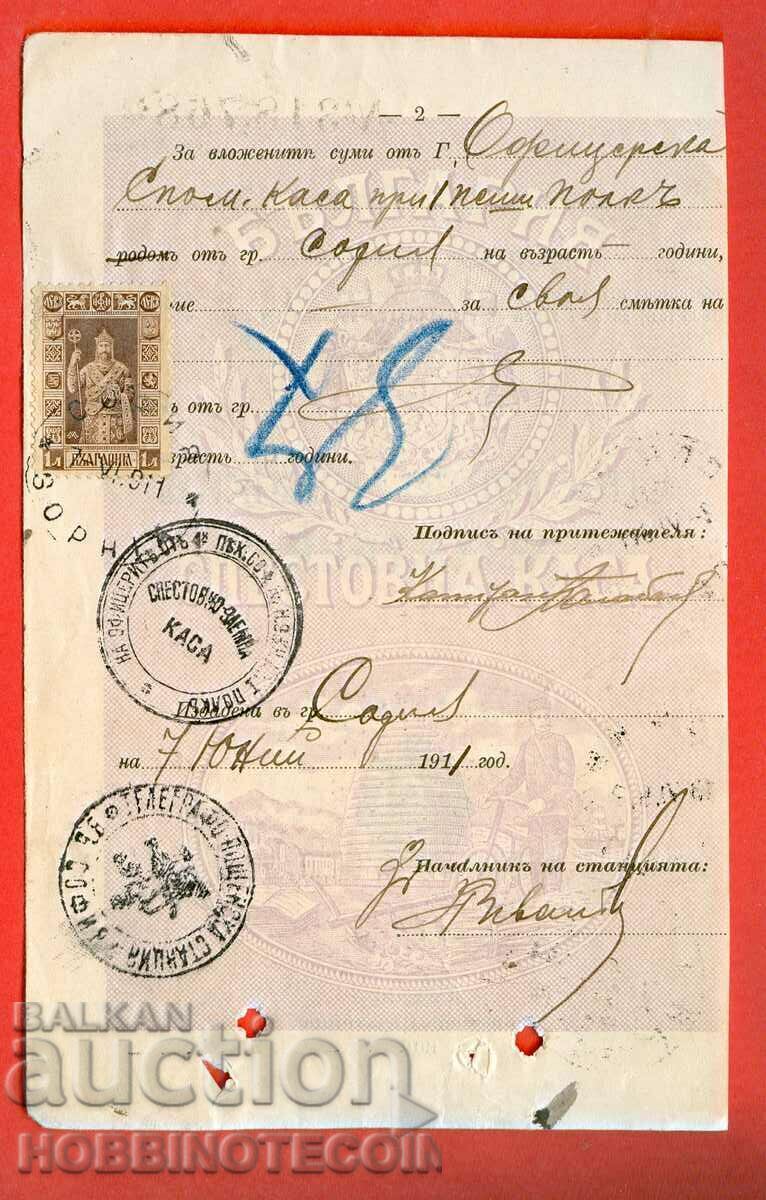 — 2 —
За вложенитѣ суми отъ Г. Офицерска
Спом. каса при 1 пеши полкъ
родомъ отъ гр. София на възрасть — години,
ие — за своя смѣтка на
ъ отъ гр.
зрасть години.
78
1Л БЪЛГАРИЯ 1Л
VI.911
Подписъ на притежателя:
БЪЛГАРИЯ
СПЕСТОВНА КАСА
НА ОФИЦЕРИТѢ ОТЪ 1й ПѢХ. СОФ. ПОЛКЪ
СПЕСТОВНО-ЗАЕМНА
КАСА
Издадена въ гр. София
на 7 Юний 1911 год.
ТЕЛЕГРАФО-ПОЩЕНСКА СТАНЦИЯ
Началникъ на станцията:
BALKAN
auction
HOBBINOTECOIN